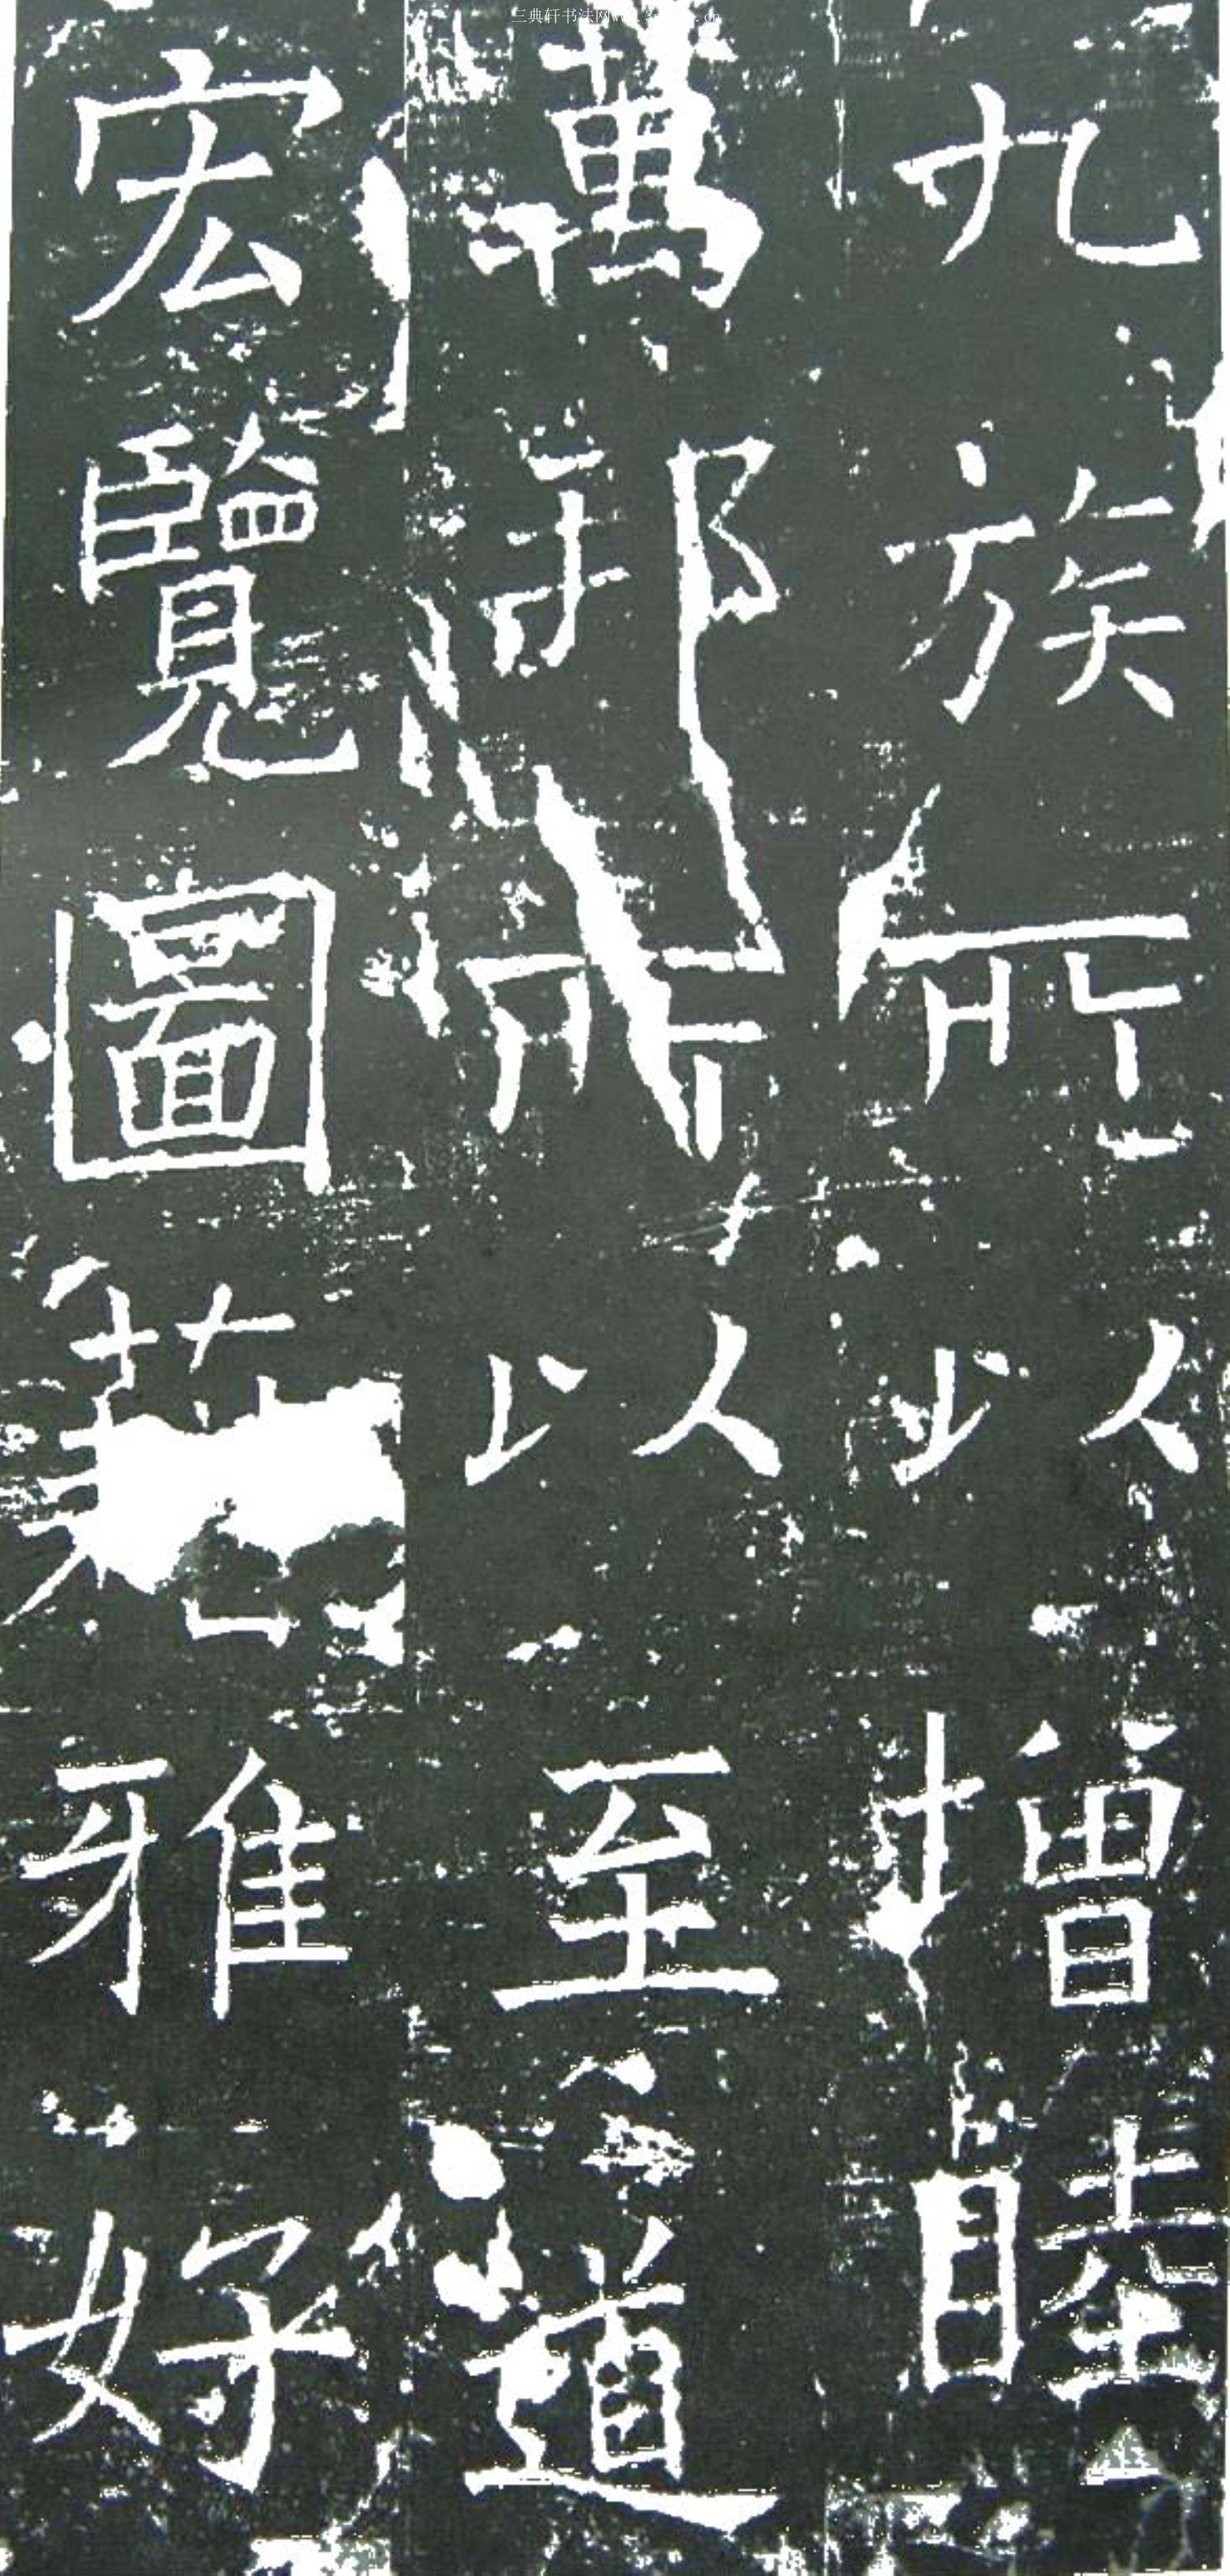 九族所以增睦
萬邦所以至道
宏覽圖籍雅好
三典轩书法网